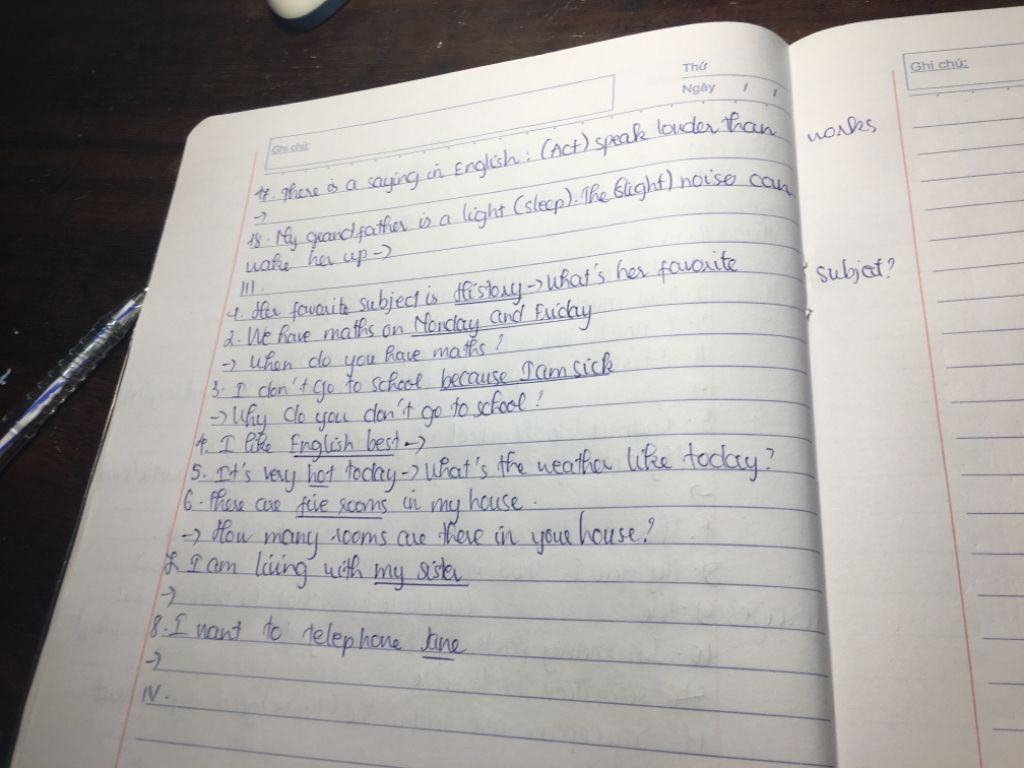 Thứ
Ngày / /
Ghi chú:
Ghi chú:
17. There is a saying in English: (Act) speak louder than works
->
18. My grandfather is a light (sleep). The (slight) noise can
wake her up ->
III.
1. Her favorite subject is History -> What's her favorite subject?
2. We have maths on Monday and Friday
-> When do you have maths?
3. I don't go to school because I am sick
-> Why do you don't go to school?
4. I like English best ->
5. It's very hot today -> What's the weather like today?
6. There are five rooms in my house.
-> How many rooms are there in your house?
7. I am living with my sister
->
8. I want to telephone Jane
->
IV.